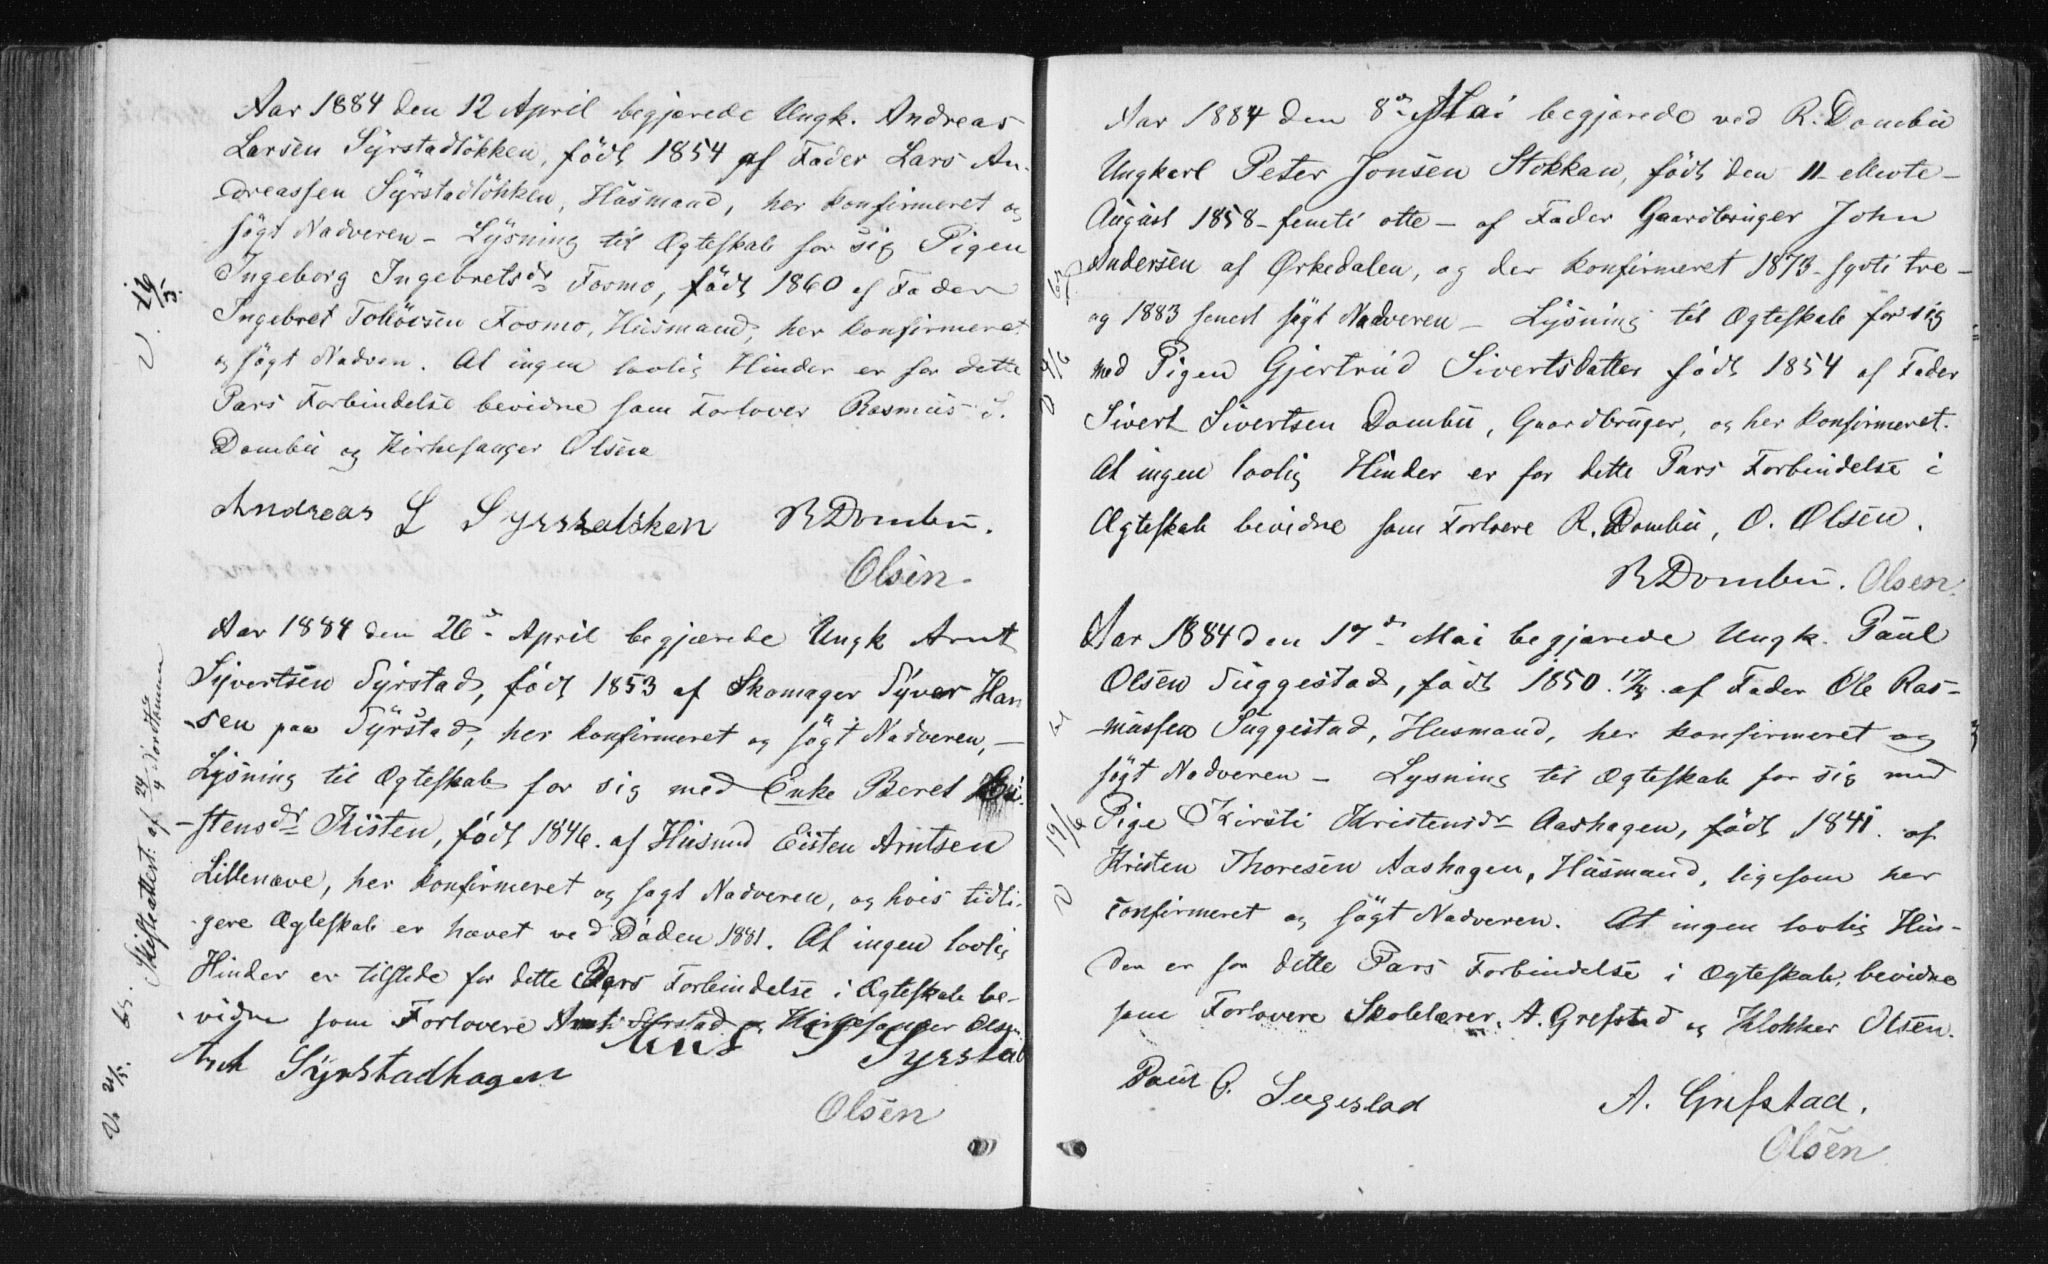 Aar 1884 den 12 April begjærede Ungk. Andreas
Larsen Syrstadløkken, født 1854 af Fader Lars An-
dreassen Syrstadløkken, Husmand, her konfirmeret og
søgt Nadveren – Lysning til Ægteskab for sig Pigen
Ingeborg Ingebretsdr Fosmo, født 1860 af Fader
Ingebret Fosmo, Husmand, her konfirmeret
og søgt Nadven. At ingen lovlig Hinder er for dette
Pars Forbindelse bevidne som Forlover Rasmus S.
Dombu og Kirkesanger Olsen
Andreas L RDombu.
Olsen.
V. 16/5.
Aar 1884 den 26de April begjærede Ungk Arnt
Sjvertsen Syrstad, født 1853 af Skomager Syver Han
sen paa Syrstad, her konfirmeret og søgt Nadveren, –
Lysning til Ægteskab for sig med Enke Beret Ei-
stensdr Kisten, født 1846. af Husmd Eisten Arntsen
Lillenæve, her konfirmeret og søgt Nadveren, og hvis tidli-
gere Ægteskab er hævet ved Døden 1881. At ingen lovlig
Hinder er tilstede for dette Pars Forbindelse i Ægteskab be-
vidne som Forlovere Arnt Syrstad og Kirkesanger Olsen
Arnt Syrstadhagen Arnt Syrstad
Olsen
Skifteattest: af 24/4
V. 24/5. bs.
Aar 1884 den 8de Mai begjærede ved R. Dombu
Ungkarl Peter Jonsen Stokkan, født den 11– ellevte –
August 1858 – femti otte – af Fader Gaardbruger John
Andersen af Ørkedalen, og der konfirmeret 1873 – sytti tre –
og 1883 senest søgt Nadveren – Lysning til Ægteskab for sig
med Pigen Gjertrud Sivertsdatter født 1854 af Fader
Sivert Sivertsen Dombu, Gaardbruger, og her konfirmeret.
At ingen lovlig Hinder er for dette Pars Forbindelse i
Ægteskab bevidne som Forlovere R. Dombu, O. Olsen.
RDombu. Olsen.
V 9/6 bs
Aar 1884 den 17de Mai begjærede Ungk. Paul
Olsen Suggestad, født 1850 af Fader Ole Ras-
mussen Suggestad, Husmand, her konfirmeret og
søgt Nadveren – Lysning til Ægteskab for sig med
Pige Kirsti Kristensdr Aashagen, født 1841. af
Kristen Thoresen Aashagen, Husmand, ligesom her
confirmeret og søgt Nadveren. At ingen lovlig Hin-
der er for dette Pars Forbindelse i Ægteskab, bevidne
som Forlovere Skolelærer A. Grefstad og Klokker Olsen.
Paul O. Sugestad A. Grefstad.
Olsen
V 19/6 bs